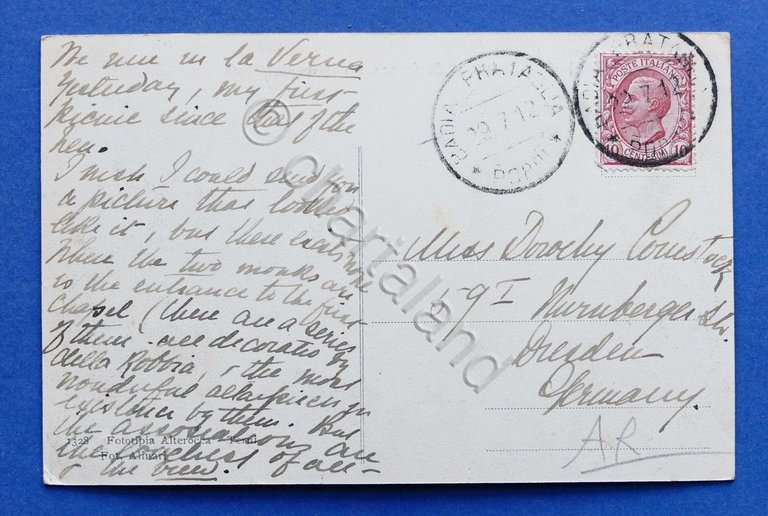 We were in la Verna
yesterday, my first
picnic since that of the
hen.
I wish I could send you
a picture that looked
like it, but there exists none
Where the two monks are
is the entrance to the first
chapel (there are a series
of them all decorated by
della Robbia, & the most
wonderful altarpieces in
existence by them. But
the assumption, an
the loveliest of all -
& the view.
1328 Fototibia Alterocca - Terni
Fot. Alinari
BADIA PRATAGLIA
19.7.12
* POPPI *
BADIA PRATAGLIA
19.7.12
* POPPI
POSTE ITALIANE
10 CENTESIMI 10
Miss Dorothy Comstock
59 I Nürnberger Str.
Dresden
Germany
AR
© chartaland